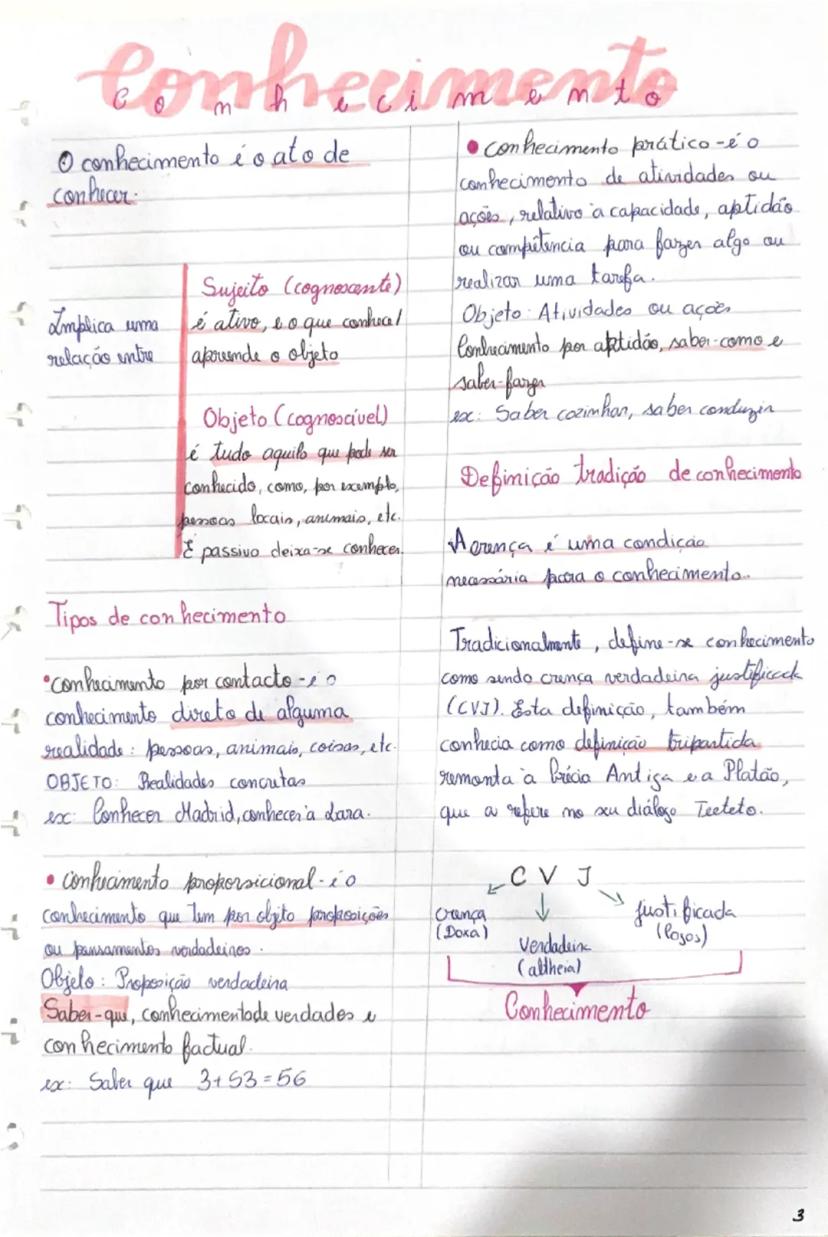 Conhecimento
Conhecimento
O conhecimento é o ato de
conhecer.
Implica uma
relação entre
Sujeito (cognoscente)
é ativo, e o que conhece/
apreende o objeto
Objeto (cognoscível)
é tudo aquilo que pode ser
conhecido, como, por exemplo,
pessoas locais, animais, etc.
É passivo deixa-se conhecer
Tipos de conhecimento
•conhecimento por contacto - é o
conhecimento direto de alguma
realidade: pessoas, animais, coisas, etc.
OBJETO: Realidades concretas
ex: Conhecer Madrid, conhecer a Lara.
• conhecimento proporsicional - é o
conhecimento que tem por objeto proposições
ou pensamentos verdadeiros.
Objeto: Proposição verdadeira
Saber-que, conhecimento de verdades e
conhecimento factual.
ex: Saber que 3+53=56
• conhecimento prático - é o
conhecimento de atividades ou
ações, relativo à capacidade, aptidão
ou competência para fazer algo ou
realizar uma tarefa.
Objeto: Atividades ou ações
Conhecimento por aptidão, saber-como e
saber-fazer
ex: Saber cozinhar, saber conduzir
Definição tradição de conhecimento
A crença é uma condição
necessária para o conhecimento.
Tradicionalmente, define-se conhecimento
como sendo crença verdadeira justificada
(CVJ). Esta definição, também
conhecia como definição tripartida
remonta à Grécia Antiga e a Platão,
que a refere no seu diálogo Teeteto.
C V J
Crença
(Doxa)
Verdadeira
(altheia)
Justificada
(logos)
Conhecimento
3